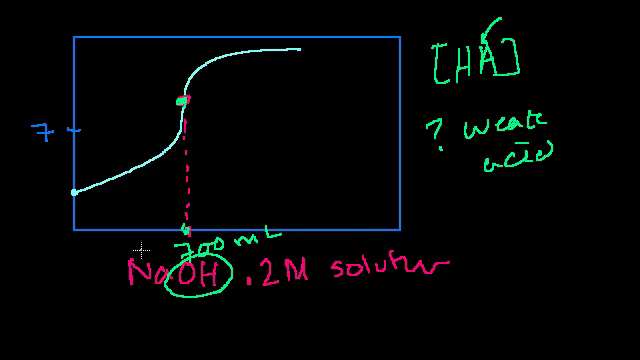 [HA]
7
? weak
acid
700 mL
NaOH .2M solution